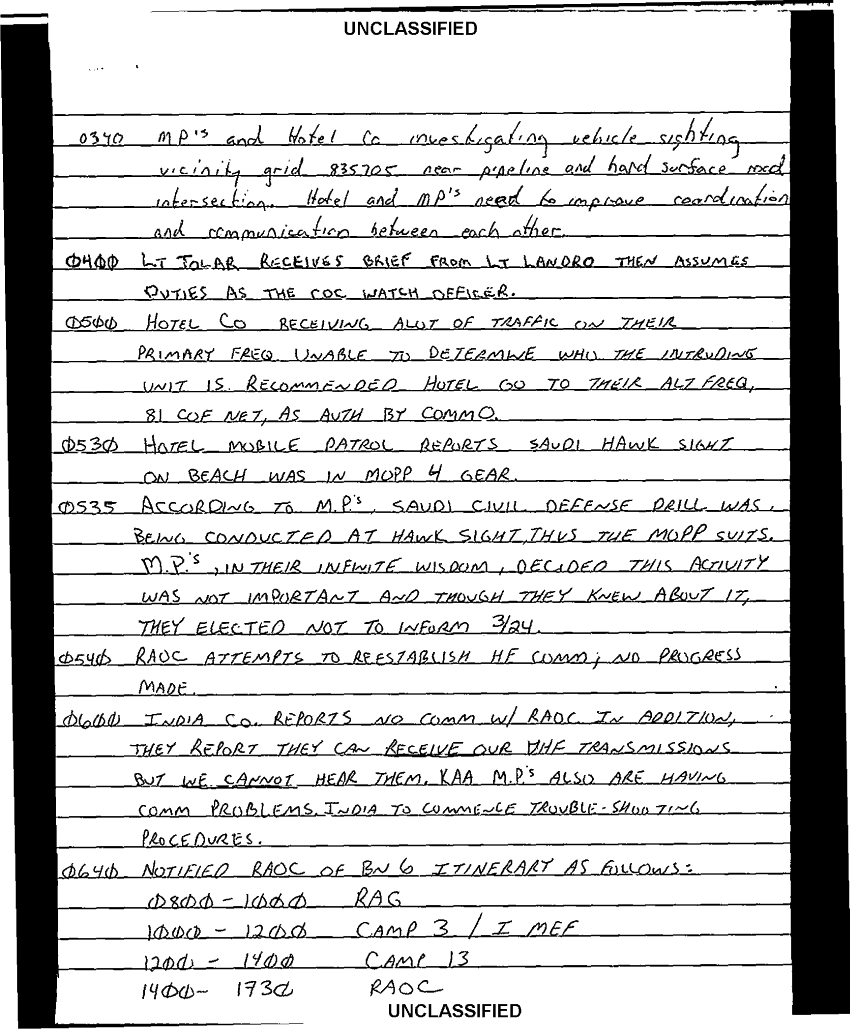 UNCLASSIFIED
0340 MP's and Hotel Co investigating vehicle sighting
vicinity grid 835705 near pipeline and hard surface road
intersection. Hotel and MP's need to improve coordination
and communication between each other.
0400 LT TOLAR RECEIVES BRIEF FROM LT LANDRO THEN ASSUMES
DUTIES AS THE COC WATCH OFFICER.
0500 HOTEL CO RECEIVING ALOT OF TRAFFIC ON THEIR
PRIMARY FREQ. UNABLE TO DETERMINE WHO THE INTRUDING
UNIT IS. RECOMMENDED HOTEL GO TO THEIR ALT FREQ,
81 COF NET, AS AUTH BY COMMO.
0530 HOTEL MOBILE PATROL REPORTS SAUDI HAWK SIGHT
ON BEACH WAS IN MOPP 4 GEAR.
0535 ACCORDING TO M.P.'s, SAUDI CIVIL DEFENSE DRILL WAS
BEING CONDUCTED AT HAWK SIGHT, THUS THE MOPP SUITS.
M.P.'s, IN THEIR INFINITE WISDOM, DECIDED THIS ACTIVITY
WAS NOT IMPORTANT AND THOUGH THEY KNEW ABOUT IT,
THEY ELECTED NOT TO INFORM 3/24.
0540 RAOC ATTEMPTS TO REESTABLISH HF COMM; NO PROGRESS
MADE.
0600 INDIA CO. REPORTS NO COMM W/ RAOC. IN ADDITION,
THEY REPORT THEY CAN RECEIVE OUR VHF TRANSMISSIONS
BUT WE CANNOT HEAR THEM. KAA M.P.'s ALSO ARE HAVING
COMM PROBLEMS. INDIA TO COMMENCE TROUBLE-SHOOTING
PROCEDURES.
0640 NOTIFIED RAOC OF BN 6 ITINERARY AS FOLLOWS:
0800 - 1000 RAG
1000 - 1200 CAMP 3 / I MEF
1200 - 1400 CAMP 13
1400 - 1730 RAOC
UNCLASSIFIED